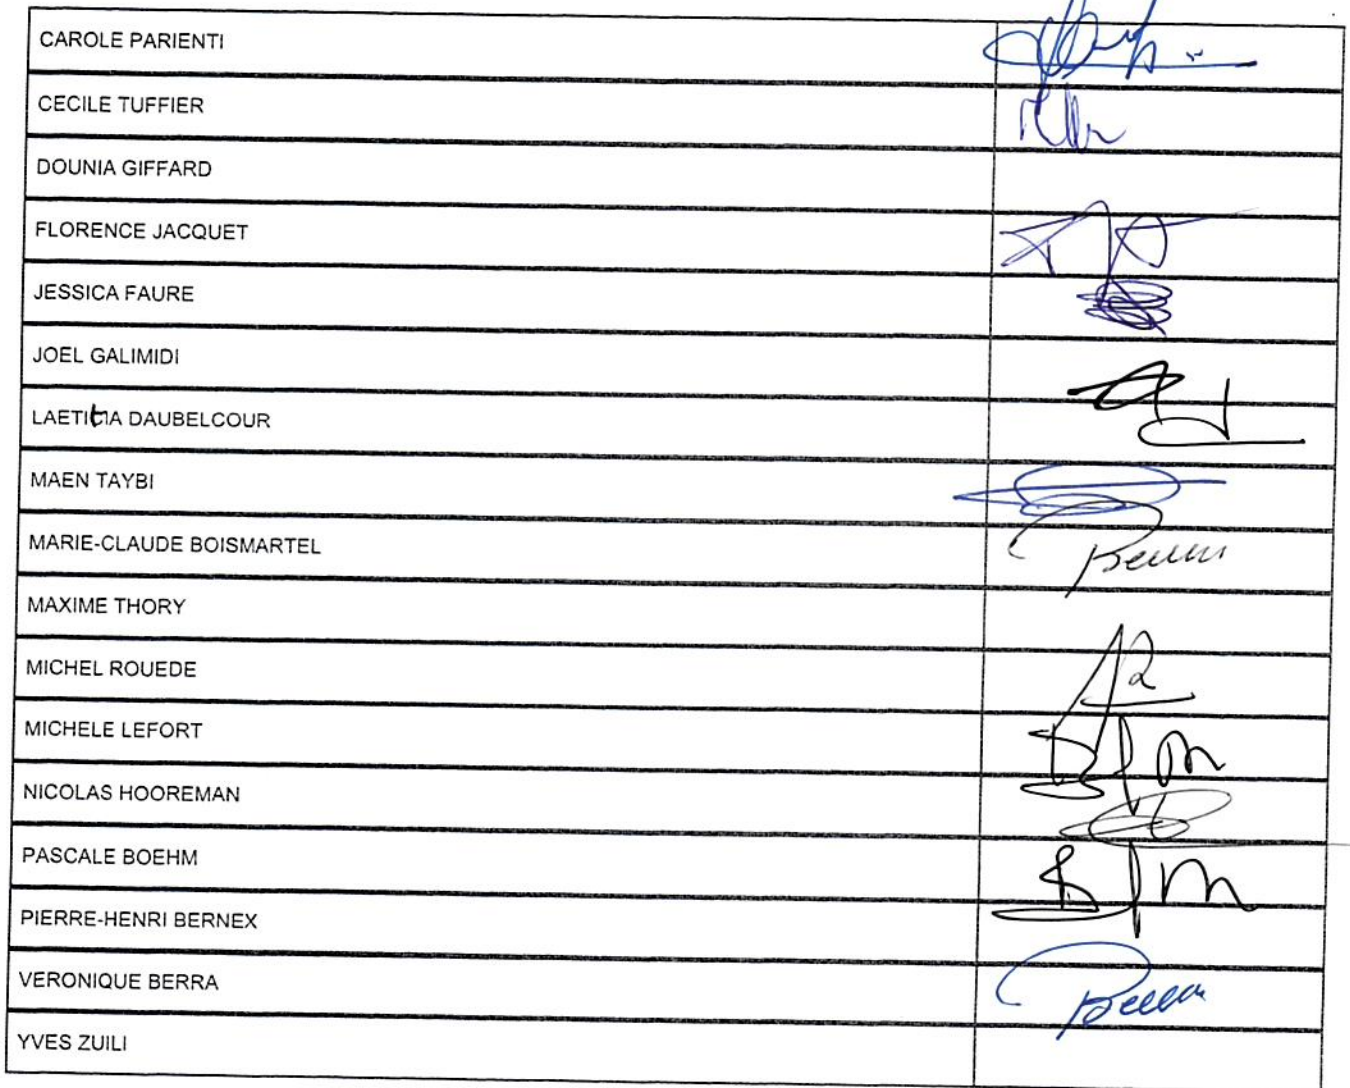 CAROLE PARIENTI
CECILE TUFFIER
DOUNIA GIFFARD
FLORENCE JACQUET
JESSICA FAURE
JOEL GALIMIDI
LAETITIA DAUBELCOUR
MAEN TAYBI
MARIE-CLAUDE BOISMARTEL
MAXIME THORY
MICHEL ROUEDE
MICHELE LEFORT
NICOLAS HOOREMAN
PASCALE BOEHM
PIERRE-HENRI BERNEX
VERONIQUE BERRA
YVES ZUILI